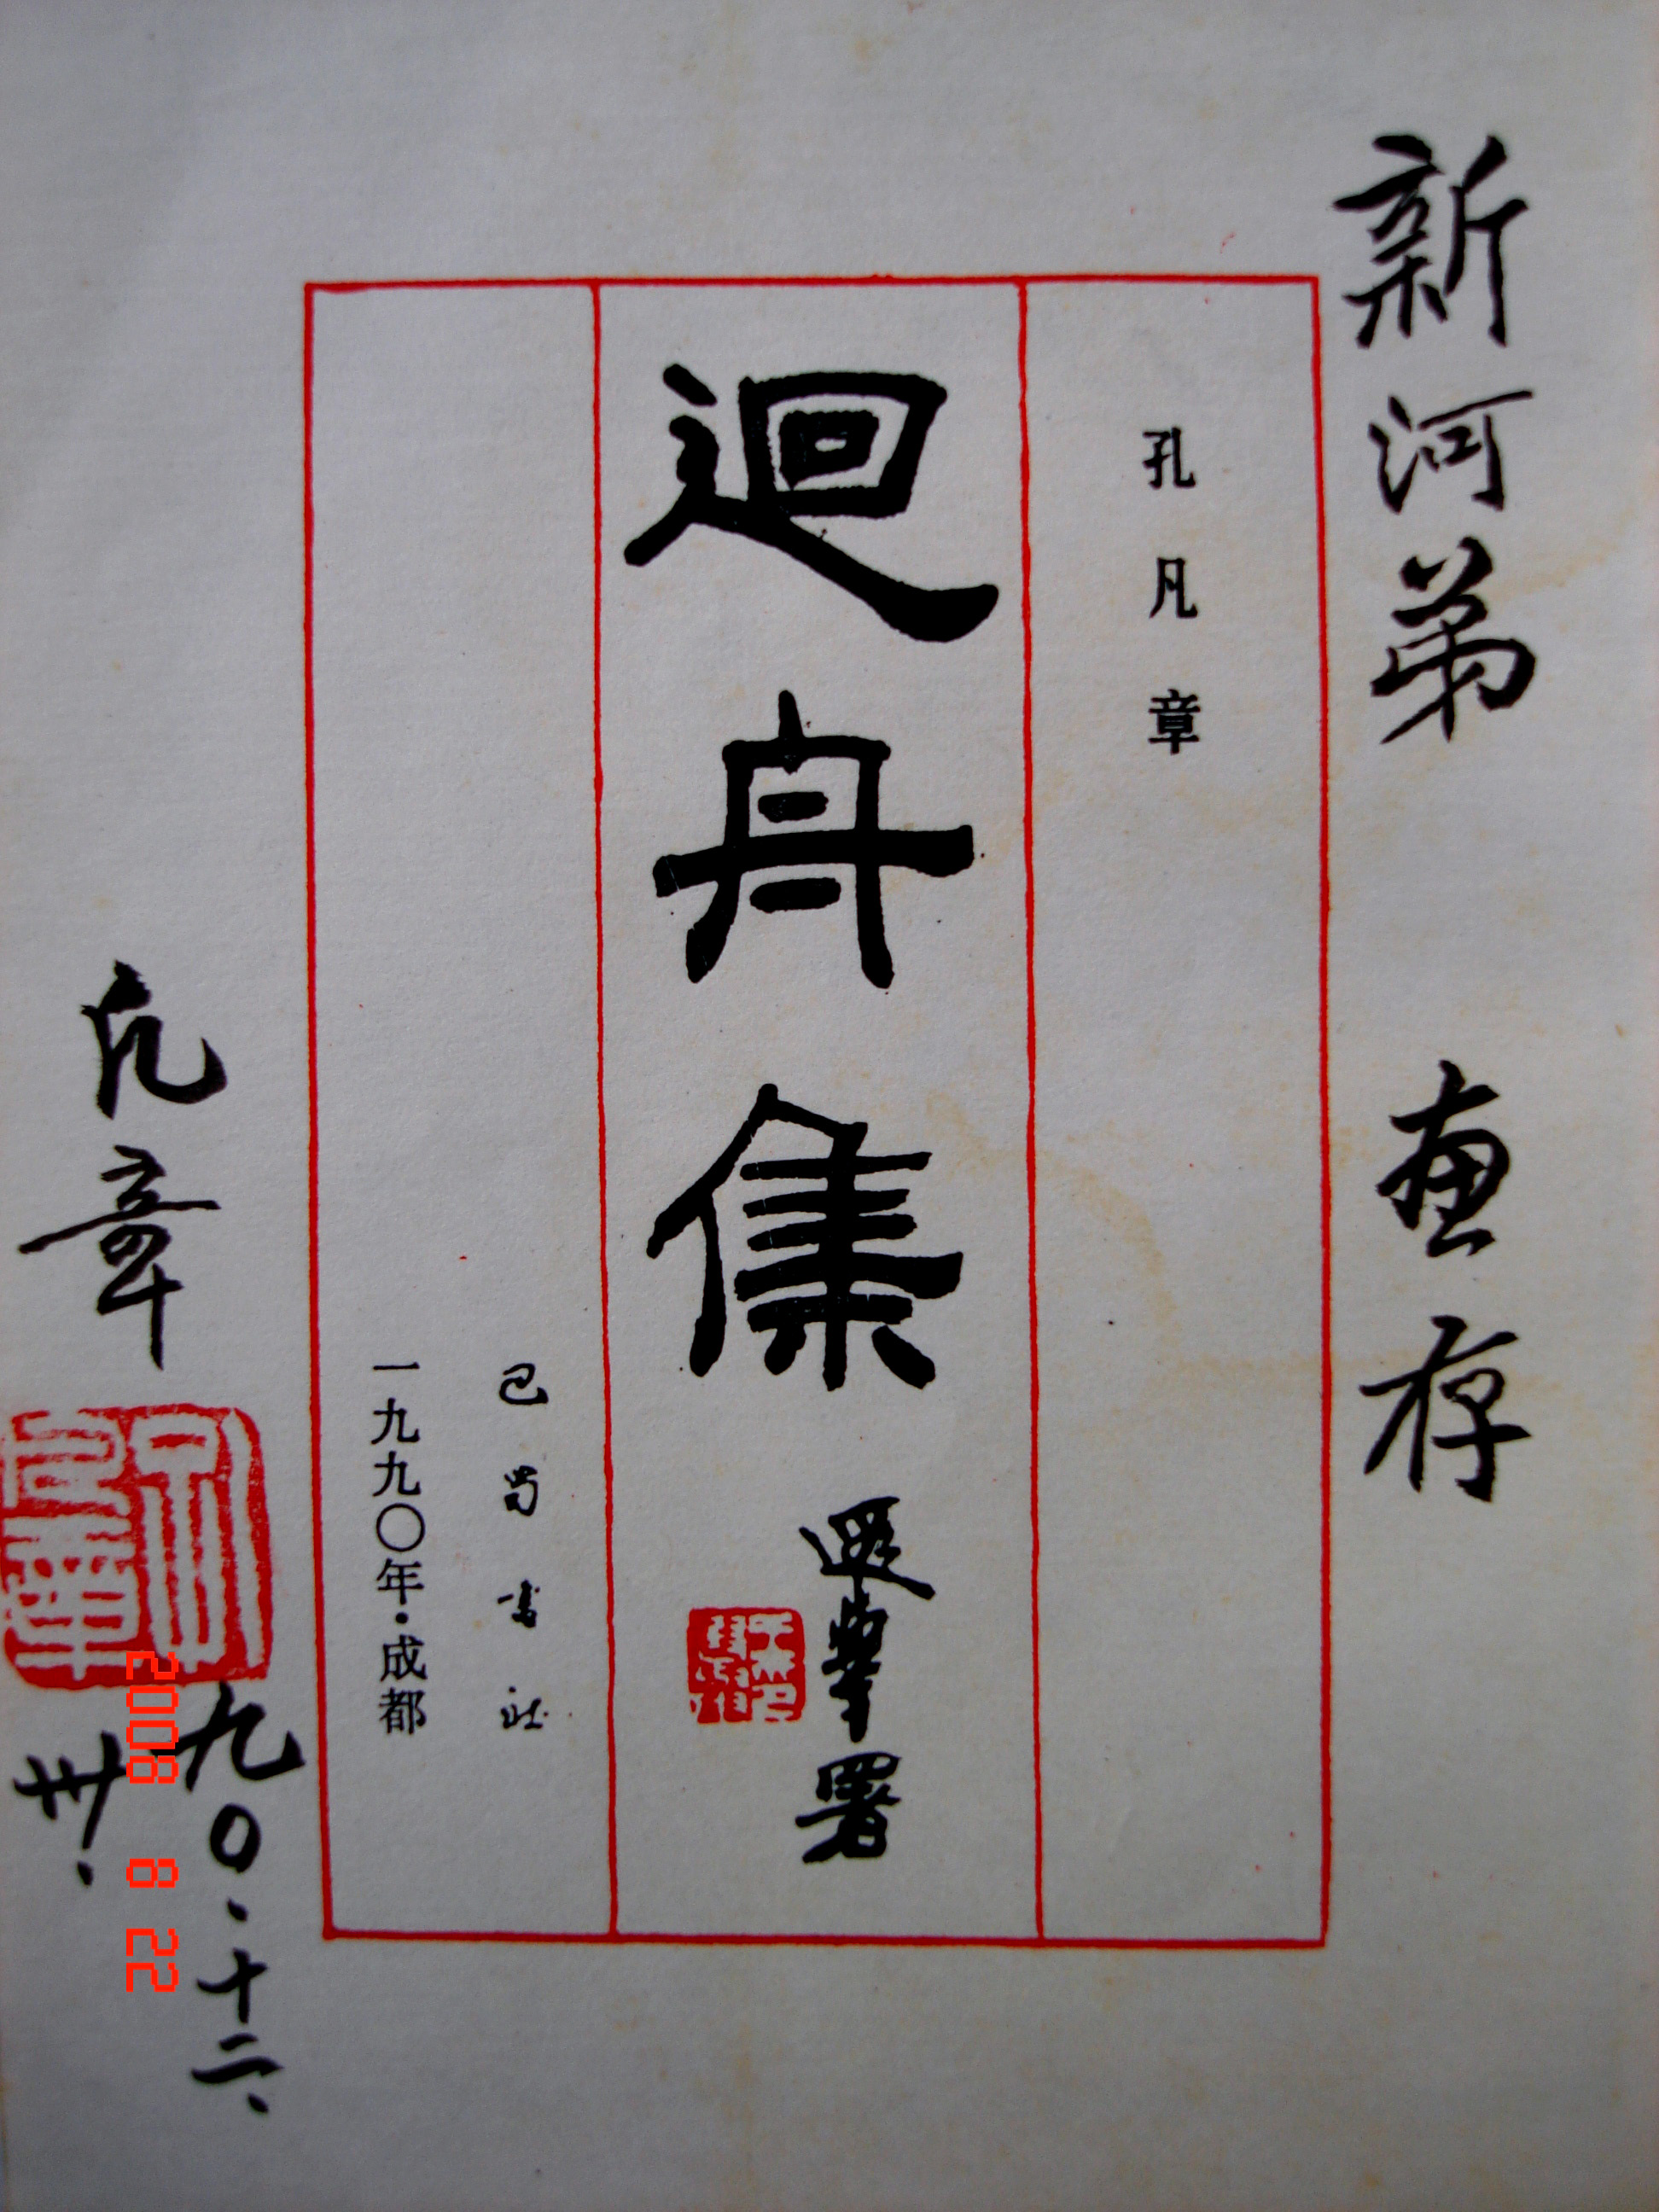 新河弟 惠存
孔凡章
迴舟集
遐举署
巴蜀书社
一九九〇年·成都
凡章
孔凡章
九〇.十二.
卅.
2008 8 22